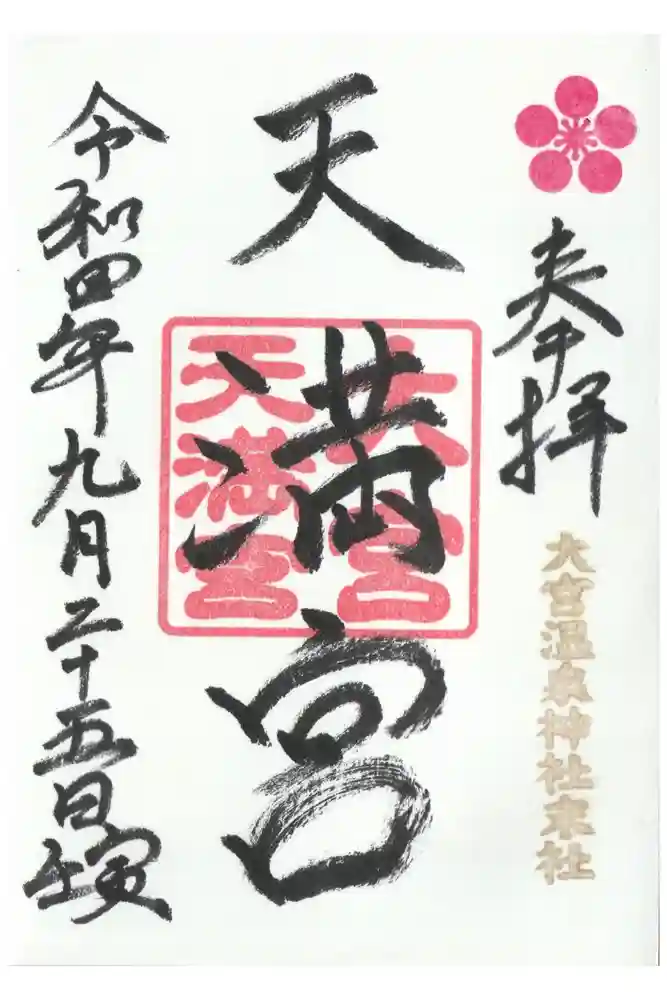 奉拝
大宮温泉神社末社
天満宮
大宮
天満宮
令和四年九月二十五日壬寅